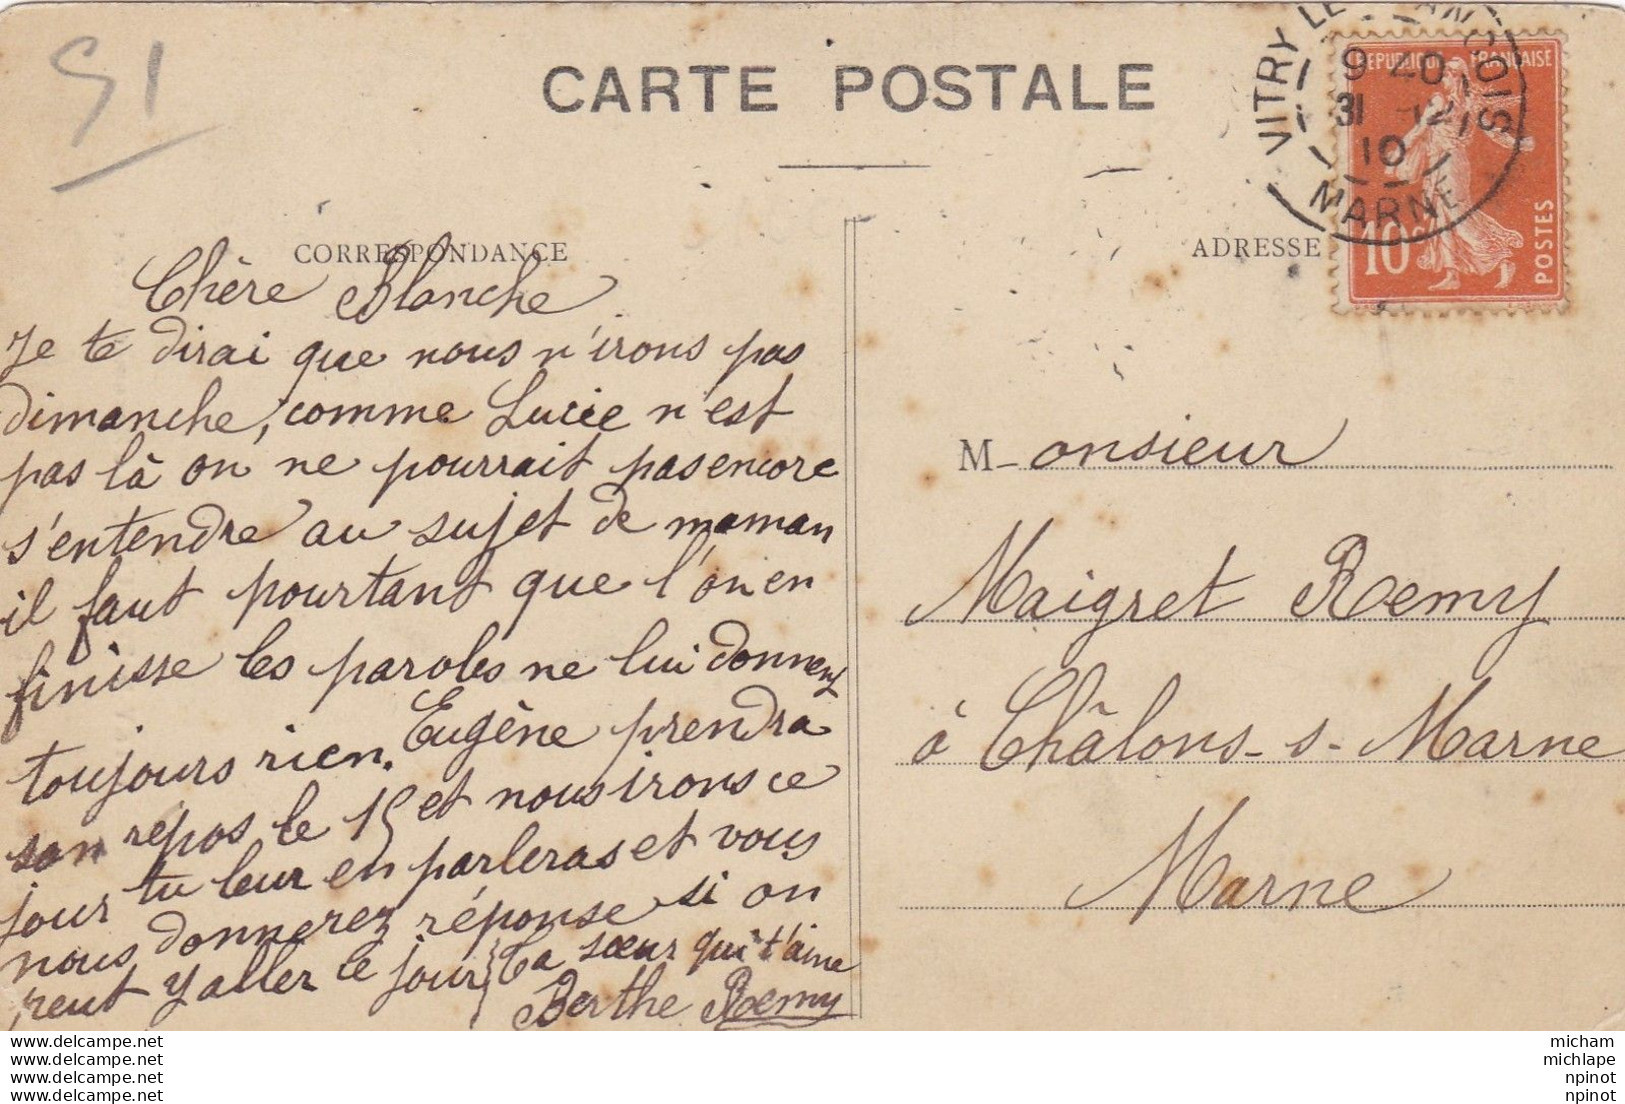 51
CARTE POSTALE
VITRY LE FRANCOIS
9 40
31 - 12
10
MARNE
REPUBLIQUE FRANÇAISE
10c
POSTES
CORRESPONDANCE
ADRESSE
Chère Blanche
Je te dirai que nous n'irons pas
dimanche, comme Lucie n'est
pas là on ne pourrait pas encore
s'entendre au sujet de maman
il faut pourtant que l'on en
finisse les paroles ne lui donnent
toujours rien. Eugène prendra
son repos le 15 et nous irons ce
jour tu leur en parleras et vous
nous donnerez réponse si on
peut y aller ce jour
Ta sœur qui t'aime
Berthe Remy
M-onsieur
Maigret Remy
à Châlons-s-Marne
Marne
www.delcampe.net
www.delcampe.net
www.delcampe.net
www.delcampe.net
micham
michlape
npinot
npinot